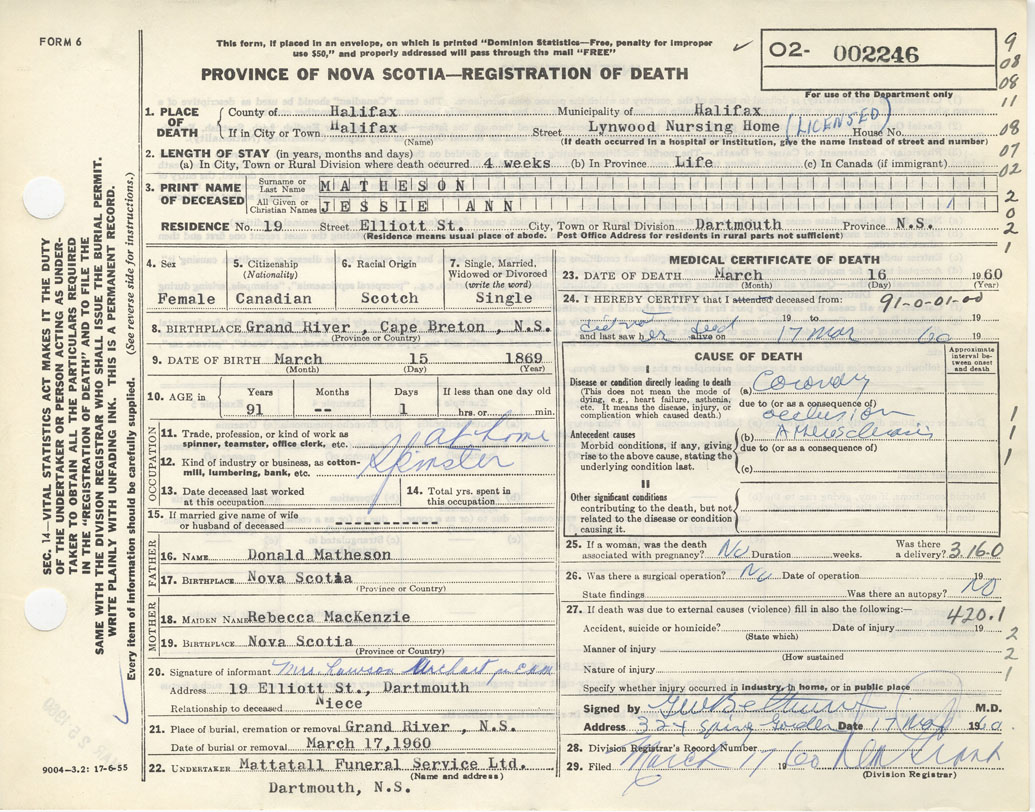 FORM 6
This form, if placed in an envelope, on which is printed "Dominion Statistics—Free, penalty for improper
use $50," and properly addressed will pass through the mail "FREE"
PROVINCE OF NOVA SCOTIA—REGISTRATION OF DEATH
02- 002246
For use of the Department only
9
08
08
11
08
07
02
2
0
2
1
SEC. 14—VITAL STATISTICS ACT MAKES IT THE DUTY
OF THE UNDERTAKER OR PERSON ACTING AS UNDER-
TAKER TO OBTAIN ALL THE PARTICULARS REQUIRED
IN THE "REGISTRATION OF DEATH" AND TO FILE THE
SAME WITH THE DIVISION REGISTRAR WHO SHALL ISSUE THE BURIAL PERMIT.
WRITE PLAINLY WITH UNFADING INK. THIS IS A PERMANENT RECORD.
Every item of information should be carefully supplied. (See reverse side for instructions.)
1. PLACE OF DEATH
County of Halifax Municipality of Halifax
If in City or Town Halifax Street Lynwood Nursing Home (LICENSED) House No.
(Name) (If death occurred in a hospital or institution, give the name instead of street and number)
2. LENGTH OF STAY (in years, months and days)
(a) In City, Town or Rural Division where death occurred 4 weeks (b) In Province Life (c) In Canada (if immigrant)
3. PRINT NAME OF DECEASED
Surname or Last Name MATHESON
All Given or Christian Names JESSIE ANN
RESIDENCE No. 19 Street Elliott St. City, Town or Rural Division Dartmouth Province N.S.
(Residence means usual place of abode. Post Office Address for residents in rural parts not sufficient)
4. Sex
Female
5. Citizenship
(Nationality)
Canadian
6. Racial Origin
Scotch
7. Single, Married, Widowed or Divorced
(write the word)
Single
8. BIRTHPLACE Grand River , Cape Breton , N.S.
(Province or Country)
9. DATE OF BIRTH March 15 1869
(Month) (Day) (Year)
10. AGE in
Years Months Days If less than one day old
91 -- 1 hrs. or min.
OCCUPATION
11. Trade, profession, or kind of work as
spinner, teamster, office clerk, etc. at home
12. Kind of industry or business, as cotton-
mill, lumbering, bank, etc. Spinster
13. Date deceased last worked
at this occupation
14. Total yrs. spent in
this occupation
15. If married give name of wife
or husband of deceased
FATHER
16. NAME Donald Matheson
17. BIRTHPLACE Nova Scotia
(Province or Country)
MOTHER
18. MAIDEN NAME Rebecca MacKenzie
19. BIRTHPLACE Nova Scotia
(Province or Country)
20. Signature of informant Mrs. Lawson
Address 19 Elliott St., Dartmouth
Relationship to deceased Niece
21. Place of burial, cremation or removal Grand River , N.S.
Date of burial or removal March 17,1960
22. UNDERTAKER Mattatall Funeral Service Ltd.
(Name and address)
Dartmouth, N.S.
9004—3.2: 17-6-55
MEDICAL CERTIFICATE OF DEATH
23. DATE OF DEATH March 16 1960
(Month) (Day) (Year)
24. I HEREBY CERTIFY that I attended deceased from: 91-0-01-00
did not 19 to 19
and last saw her dead alive on 17 Mar 60 19
CAUSE OF DEATH
Approximate interval between onset and death
I
Disease or condition directly leading to death
(This does not mean the mode of
dying, e.g., heart failure, asthenia,
etc. It means the disease, injury, or
complication which caused death.)
(a) Coronary
due to (or as a consequence of)
occlusion
Antecedent causes
Morbid conditions, if any, giving
rise to the above cause, stating the
underlying condition last.
(b)
due to (or as a consequence of)
(c)
1
1
1
II
Other significant conditions
contributing to the death, but not
related to the disease or condition
causing it.
25. If a woman, was the death
associated with pregnancy? No Duration weeks. Was there a delivery? 3.16.0
26. Was there a surgical operation? No Date of operation 19
State findings Was there an autopsy? NO
27. If death was due to external causes (violence) fill in also the following:— 420.1
Accident, suicide or homicide? Date of injury 19
(State which)
Manner of injury
(How sustained)
Nature of injury
2
2
1
Specify whether injury occurred in industry, in home, or in public place
Signed by M.D.
Address 324 Spring Garden Date 17 Mar 1960
28. Division Registrar's Record Number
29. Filed March 17 1960
(Division Registrar)